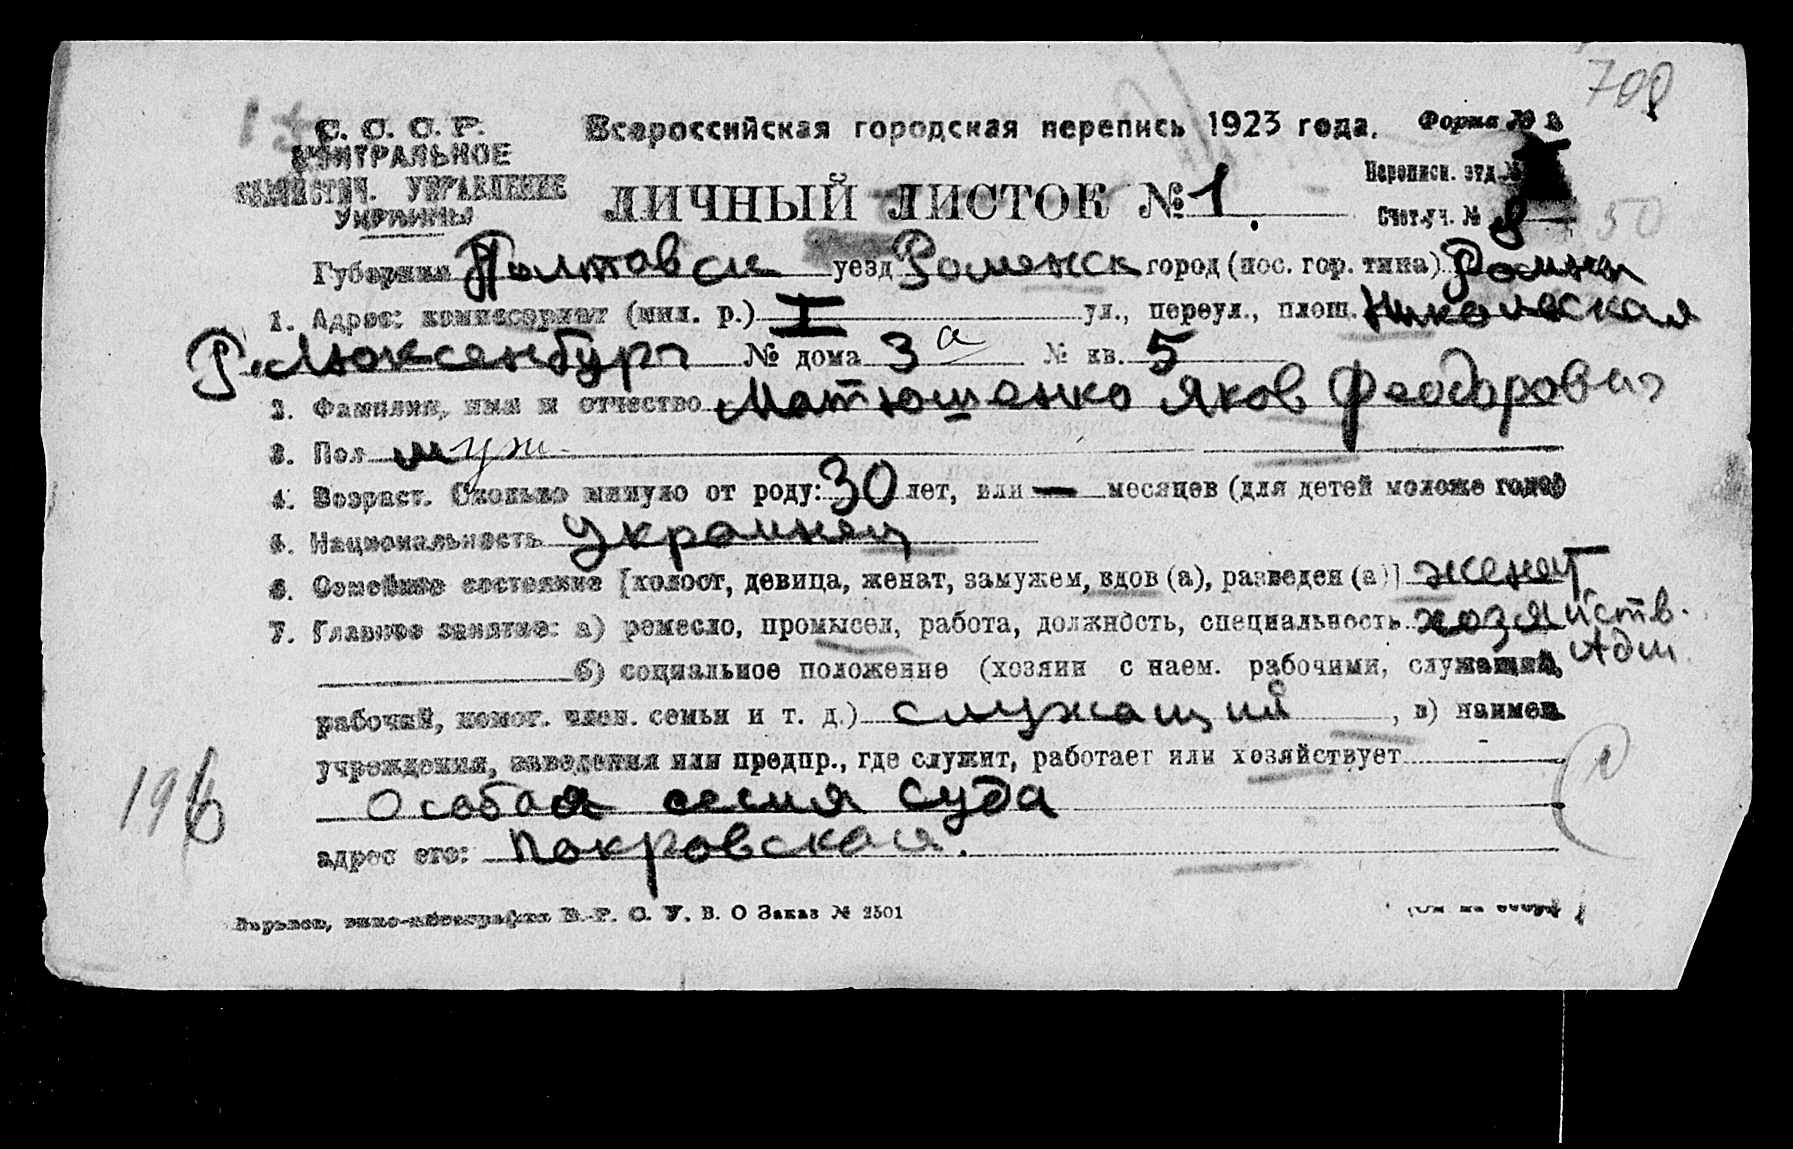 700
С. С. С. Р.
Всероссийская городская перепись 1923 года.
Форма № 2
ЦЕНТРАЛЬНОЕ
СТАТИСТИЧ. УПРАВЛЕНИЕ
УКРАИНЫ
Переписн. отд. №
ЛИЧНЫЙ ЛИСТОК № 1.
Счет. уч. №
50
Губерния Полтавск уезд Роменск город (пос. гор. типа) Ромны
1. Адрес: комиссариат (мил. р.) I ул., переул., площ. Никольская
Р. Люксенбург № дома 3 а № кв. 5
2. Фамилия, имя и отчество Матюшенко Яков Феодорович
3. Пол муж
4. Возраст. Сколько минуло от роду: 30 лет, или — месяцев (для детей моложе года)
5. Национальность Украинец
6. Семейное состояние [холост, девица, женат, замужем, вдов (а), разведен (а)] женат
7. Главное занятие: а) ремесло, промысел, работа, должность, специальность хозяйств.
Адм.
б) социальное положение (хозяин с наем. рабочими, служащий,
рабочий, помог. член. семьи и т. д.) служащий, в) наимен.
учреждения, заведения или предпр., где служит, работает или хозяйствует
196
Особая сесия Суда
адрес его: Покровская.
Харьков, типо-литография В. У. С. У. В. О Заказ № 2501